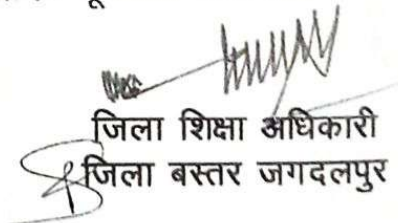 जिला शिक्षा अधिकारी
जिला बस्तर जगदलपुर